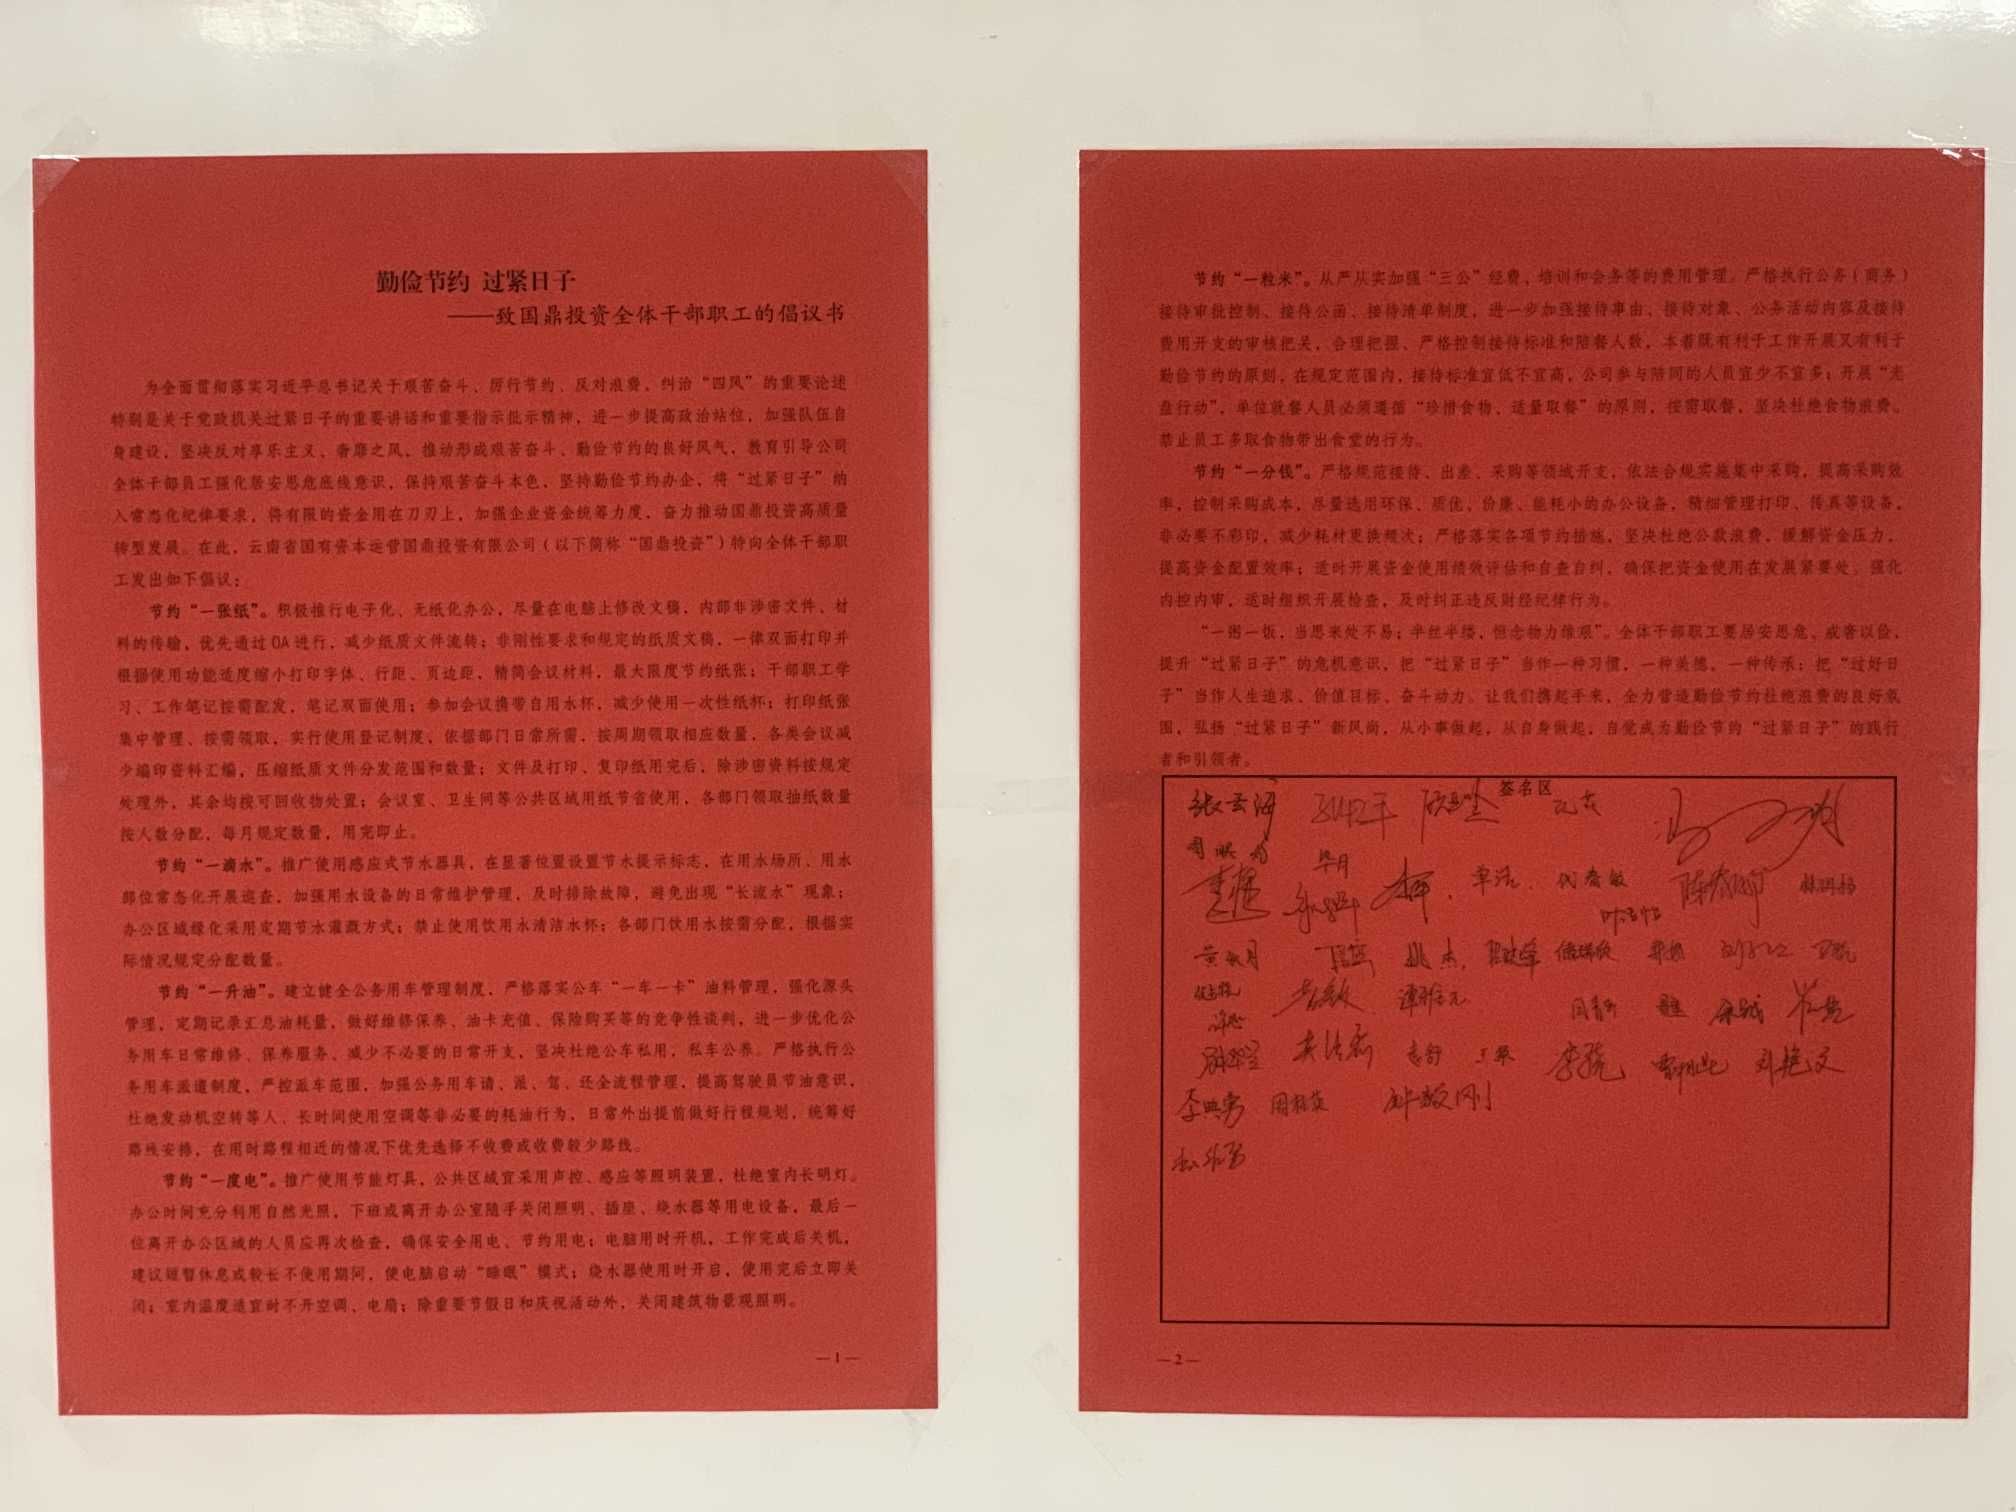 勤俭节约 过紧日子
——致国鼎投资全体干部职工的倡议书
为全面贯彻落实习近平总书记关于艰苦奋斗、厉行节约、反对浪费、纠治“四风”的重要论述
特别是关于党政机关过紧日子的重要讲话和重要指示批示精神，进一步提高政治站位，加强队伍自
身建设，坚决反对享乐主义、奢靡之风，推动形成艰苦奋斗、勤俭节约的良好风气，教育引导公司
全体干部员工强化居安思危底线意识，保持艰苦奋斗本色，坚持勤俭节约办企，将“过紧日子”纳
入常态化纪律要求，将有限的资金用在刀刃上，加强企业资金统筹力度，奋力推动国鼎投资高质量
转型发展。在此，云南省国有资本运营国鼎投资有限公司（以下简称“国鼎投资”）特向全体干部职
工发出如下倡议：
节约“一张纸”。积极推行电子化、无纸化办公，尽量在电脑上修改文稿，内部非涉密文件、材
料的传输，优先通过OA进行，减少纸质文件流转；非刚性要求和规定的纸质文稿，一律双面打印并
根据使用功能适度缩小打印字体、行距、页边距，精简会议材料，最大限度节约纸张；干部职工学
习、工作笔记按需配发，笔记双面使用；参加会议携带自用水杯，减少使用一次性纸杯；打印纸张
集中管理、按需领取，实行使用登记制度，依据部门日常所需，按周期领取相应数量，各类会议减
少编印资料汇编，压缩纸质文件分发范围和数量；文件及打印、复印纸用完后，除涉密资料按规定
处理外，其余均按可回收物处置；会议室、卫生间等公共区域用纸节省使用，各部门领取抽纸数量
按人数分配，每月规定数量，用完即止。
节约“一滴水”。推广使用感应式节水器具，在显著位置设置节水提示标志，在用水场所、用水
部位常态化开展巡查，加强用水设备的日常维护管理，及时排除故障，避免出现“长流水”现象；
办公区域绿化采用定期节水灌溉方式；禁止使用饮用水清洁水杯；各部门饮用水按需分配，根据实
际情况规定分配数量。
节约“一升油”。建立健全公务用车管理制度，严格落实公车“一车一卡”油料管理，强化源头
管理，定期记录汇总油耗量，做好维修保养、油卡充值、保险购买等的竞争性谈判，进一步优化公
务用车日常维修、保养服务、减少不必要的日常开支，坚决杜绝公车私用，私车公养。严格执行公
务用车派遣制度，严控派车范围，加强公务用车请、派、驾、还全流程管理，提高驾驶员节油意识，
杜绝发动机空转等人、长时间使用空调等非必要的耗油行为，日常外出提前做好行程规划，统筹好
路线安排，在用时路程相近的情况下优先选择不收费或收费较少路线。
节约“一度电”。推广使用节能灯具，公共区域宜采用声控、感应等照明装置，杜绝室内长明灯。
办公时间充分利用自然光照，下班或离开办公室随手关闭照明、插座、烧水器等用电设备，最后一
位离开办公区域的人员应再次检查，确保安全用电、节约用电；电脑用时开机，工作完成后关机，
建议短暂休息或较长不使用期间，使电脑启动“睡眠”模式；烧水器使用时开启，使用完后立即关
闭；室内温度适宜时不开空调、电扇；除重要节假日和庆祝活动外，关闭建筑物景观照明。
—1—
节约“一粒米”。从严从实加强“三公”经费、培训和会务等的费用管理。严格执行公务（商务）
接待审批控制、接待公函、接待清单制度，进一步加强接待事由、接待对象、公务活动内容及接待
费用开支的审核把关，合理把握、严格控制接待标准和陪餐人数，本着既有利于工作开展又有利于
勤俭节约的原则，在规定范围内，接待标准宜低不宜高，公司参与陪同的人员宜少不宜多；开展“光
盘行动”，单位就餐人员必须遵循“珍惜食物、适量取餐”的原则，按需取餐，坚决杜绝食物浪费。
禁止员工多取食物带出食堂的行为。
节约“一分钱”。严格规范接待、出差、采购等领域开支，依法合规实施集中采购，提高采购效
率，控制采购成本，尽量选用环保、质优，价廉、能耗小的办公设备，精细管理打印、传真等设备，
非必要不彩印，减少耗材更换频次；严格落实各项节约措施，坚决杜绝公款浪费，缓解资金压力，
提高资金配置效率；适时开展资金使用绩效评估和自查自纠，确保把资金使用在发展紧要处。强化
内控内审，适时组织开展检查，及时纠正违反财经纪律行为。
“一粥一饭，当思来处不易；半丝半缕，恒念物力维艰”。全体干部职工要居安思危，戒奢以俭，
提升“过紧日子”的危机意识，把“过紧日子”当作一种习惯，一种美德，一种传承；把“过好日
子”当作人生追求、价值目标、奋斗动力。让我们携起手来，全力营造勤俭节约杜绝浪费的良好氛
围，弘扬“过紧日子”新风尚，从小事做起，从自身做起，自觉成为勤俭节约“过紧日子”的践行
者和引领者。
签名区
张云海
毕月
代希敏
姚杰
李竸
刘艳文
李典勇
—2—